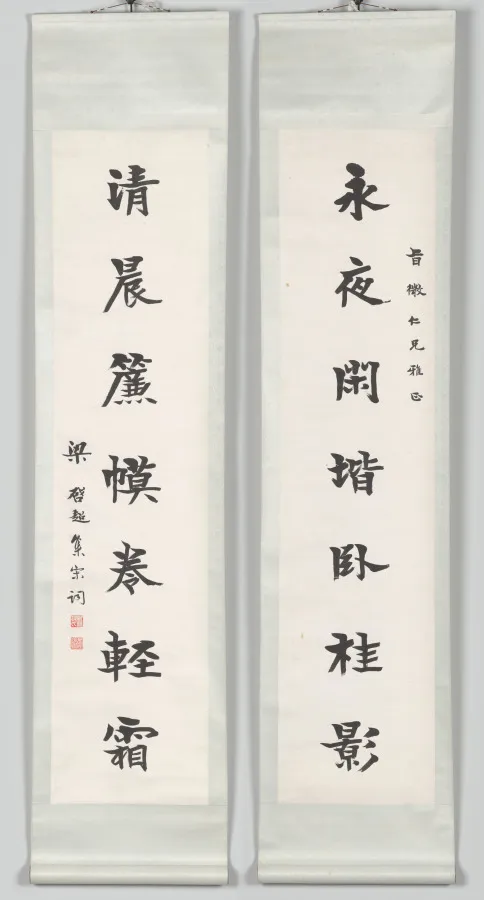 永夜閑堦臥桂影
旨微仁兄雅正
清晨簾幙卷輕霜
梁啟超集宋詞